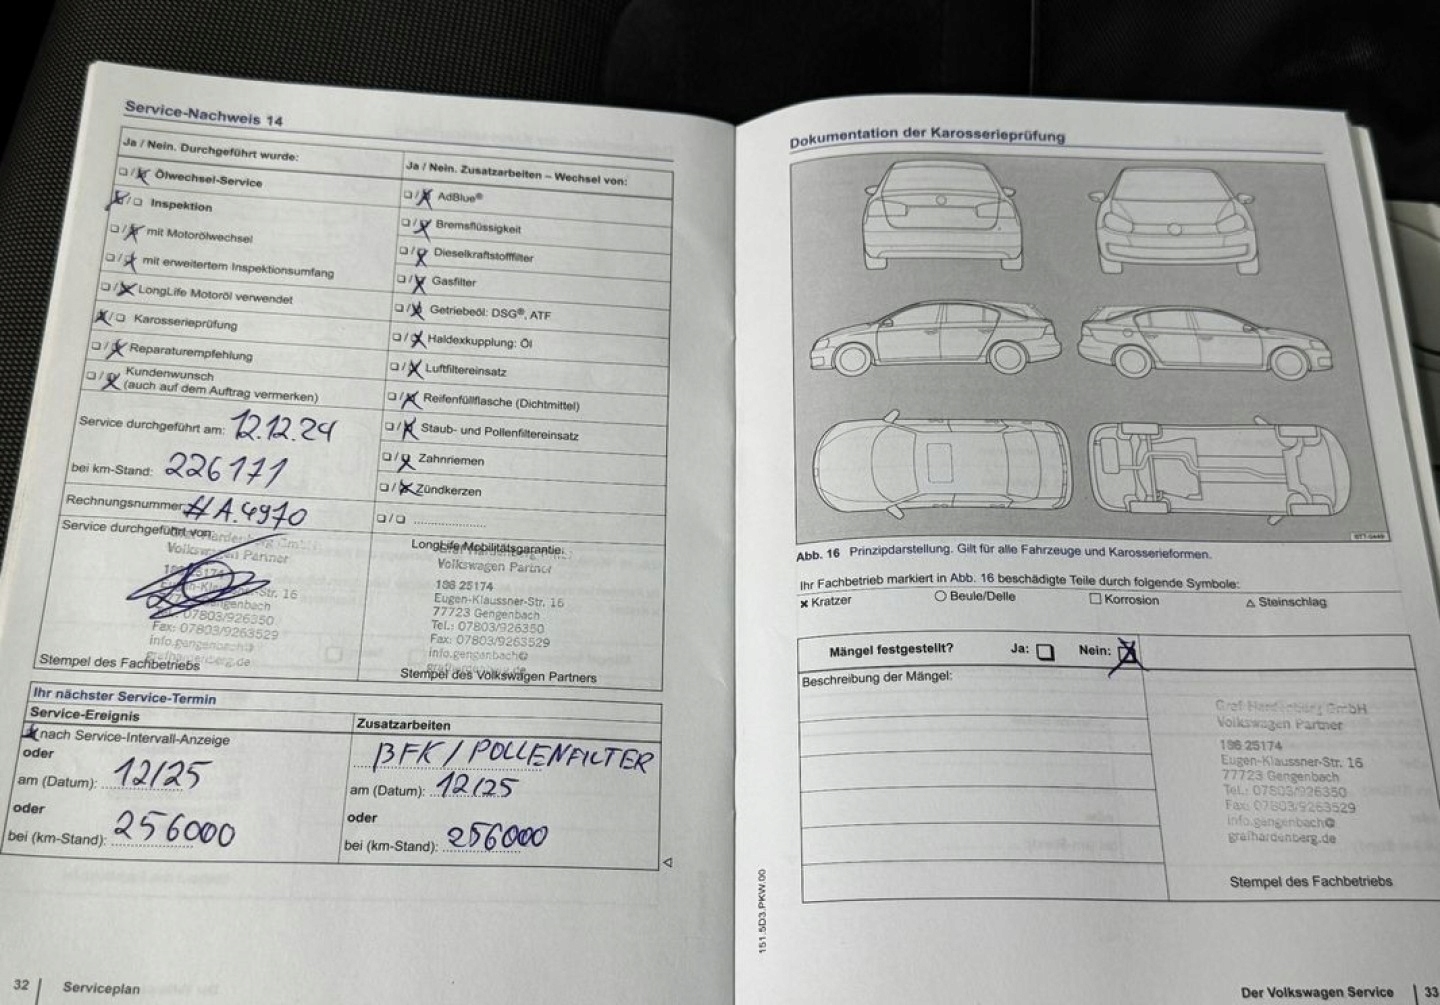 Service-Nachweis 14
Ja / Nein. Durchgeführt wurde:
❏/❏ Ölwechsel-Service
❏/❏ Inspektion
❏/❏ mit Motorölwechsel
❏/❏ mit erweitertem Inspektionsumfang
❏/❏ LongLife Motoröl verwendet
❏/❏ Karosserieprüfung
❏/❏ Reparaturempfehlung
❏/❏ Kundenwunsch
(auch auf dem Auftrag vermerken)
Service durchgeführt am: 12.12.24
bei km-Stand: 226171
Rechnungsnummer #A.4970
Service durchgeführt von
Volkswagen Partner
Eugen-Klaussner-Str. 16
Gengenbach
07803/926350
Fax: 07803/9263529
info.gengenbach@
grafhardenberg.de
Stempel des Fachbetriebs
Ja / Nein. Zusatzarbeiten – Wechsel von:
❏/❏ AdBlue®
❏/❏ Bremsflüssigkeit
❏/❏ Dieselkraftstofffilter
❏/❏ Gasfilter
❏/❏ Getriebeöl: DSG®, ATF
❏/❏ Haldexkupplung: Öl
❏/❏ Luftfiltereinsatz
❏/❏ Reifenfüllflasche (Dichtmittel)
❏/❏ Staub- und Pollenfiltereinsatz
❏/❏ Zahnriemen
❏/❏ Zündkerzen
❏/❏ ....................
LongLife Mobilitätsgarantie
Volkswagen Partner
186 25174
Eugen-Klaussner-Str. 16
77723 Gengenbach
Tel.: 07803/926350
Fax: 07803/9263529
info.gengenbach@
grafhardenberg.de
Stempel des Volkswagen Partners
Ihr nächster Service-Termin
Service-Ereignis
nach Service-Intervall-Anzeige
oder
am (Datum): 12/25
oder
bei (km-Stand): 256000
Zusatzarbeiten
BFK / POLLENFILTER
am (Datum): 12/25
oder
bei (km-Stand): 256000
32 | Serviceplan
Dokumentation der Karosserieprüfung
Abb. 16 Prinzipdarstellung. Gilt für alle Fahrzeuge und Karosserieformen.
Ihr Fachbetrieb markiert in Abb. 16 beschädigte Teile durch folgende Symbole:
× Kratzer ○ Beule/Delle □ Korrosion △ Steinschlag
Mängel festgestellt? Ja: ❏ Nein: ❏
Beschreibung der Mängel:
Graf Hardenberg GmbH
Volkswagen Partner
186 25174
Eugen-Klaussner-Str. 16
77723 Gengenbach
Tel.: 07803/926350
Fax: 07803/9263529
info.gengenbach@
grafhardenberg.de
Stempel des Fachbetriebs
151.5D3.PKW.00
Der Volkswagen Service | 33